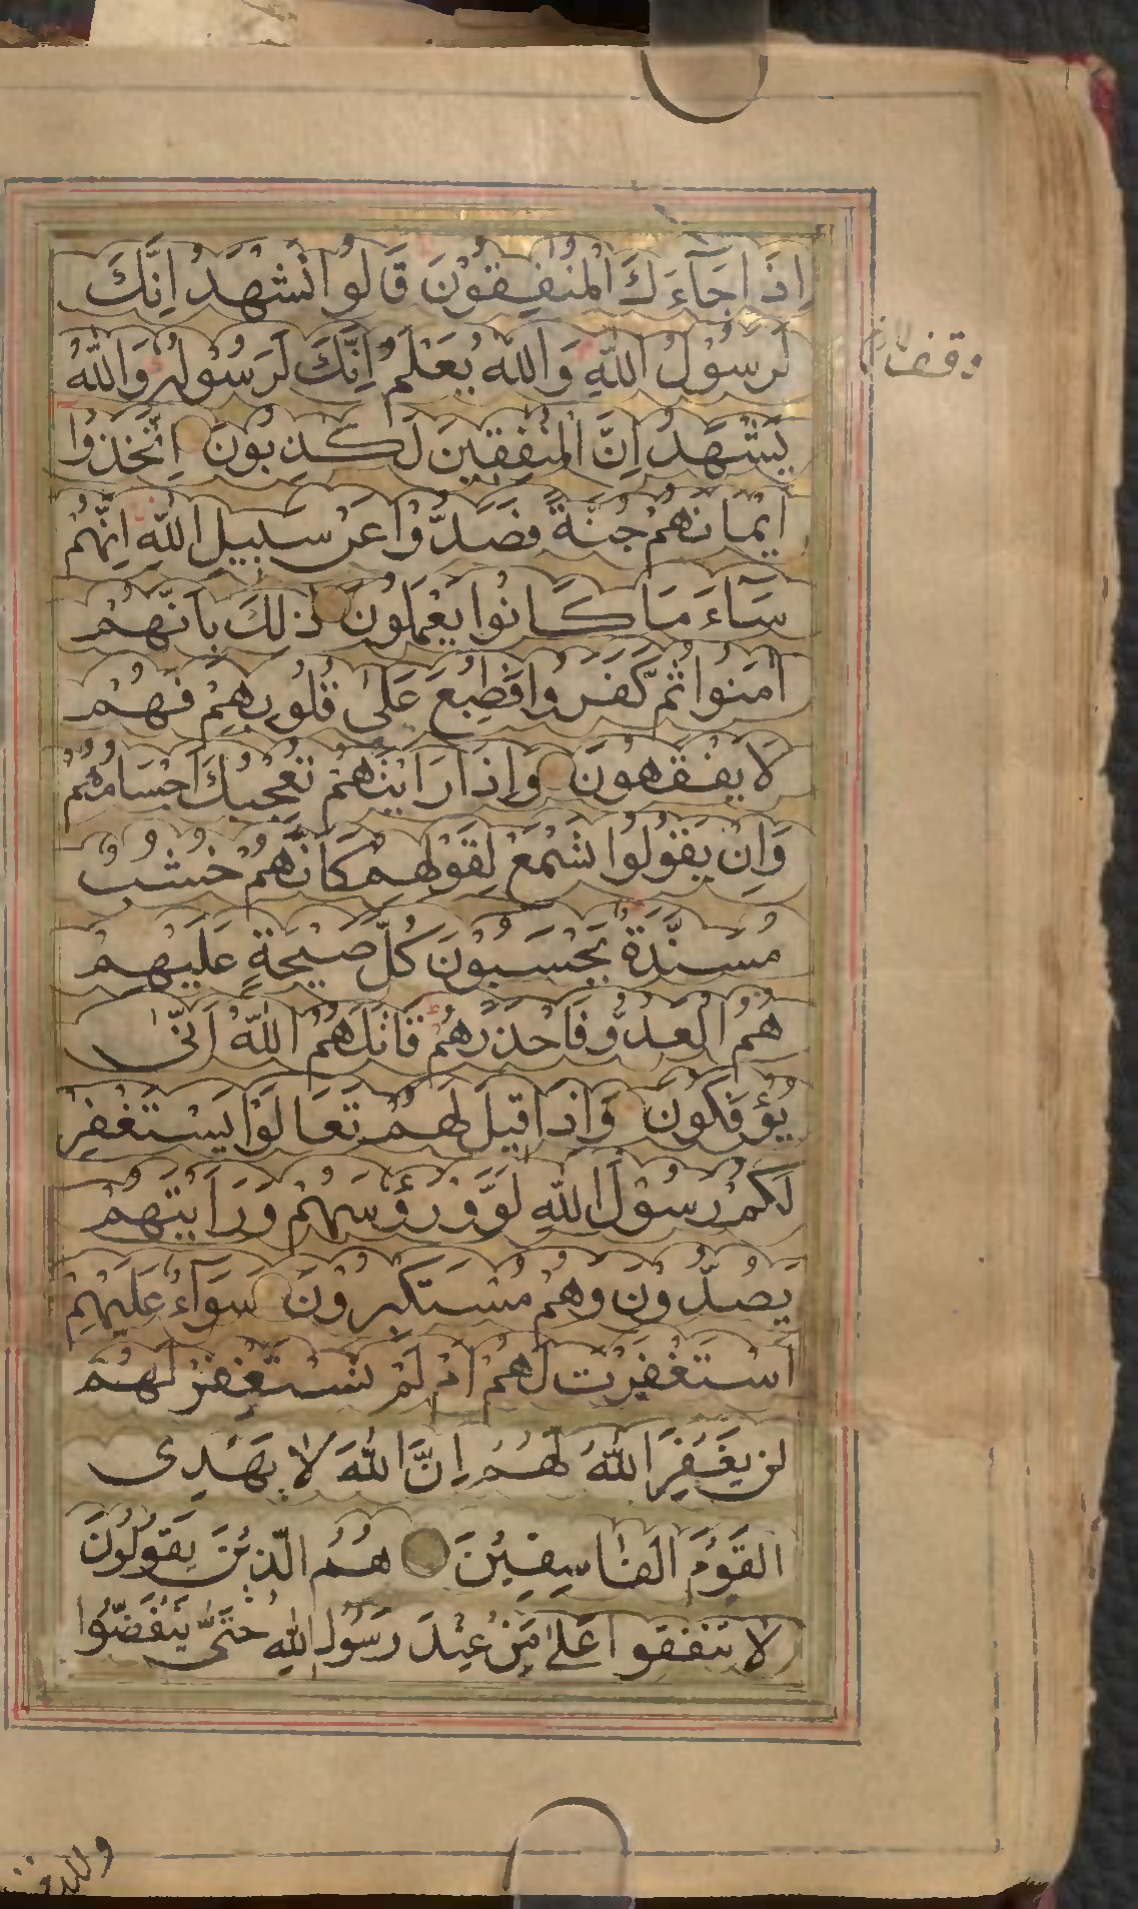 اِذَاجَآءَكَ الْمُنٰفِقُوْنَ قَالُوا نَشْهَدُ اِنَّكَ
لَرَسُوْلُ اللّٰهِ وَاللّٰهُ يَعْلَمُ اِنَّكَ لَرَسُوْلُهٗ وَاللّٰهُ
وقف لازم
يَشْهَدُ اِنَّ الْمُنٰفِقِيْنَ لَكٰذِبُوْنَ اِتَّخَذُوْا
اَيْمَانَهُمْ جُنَّةً فَصَدُّوْا عَنْ سَبِيْلِ اللّٰهِ اِنَّهُمْ
سَآءَ مَا كَانُوْا يَعْمَلُوْنَ ذٰلِكَ بِاَنَّهُمْ
اٰمَنُوْا ثُمَّ كَفَرُوْا فَطُبِعَ عَلٰى قُلُوْبِهِمْ فَهُمْ
لَا يَفْقَهُوْنَ وَاِذَا رَاَيْتَهُمْ تُعْجِبُكَ اَجْسَامُهُمْ
وَاِنْ يَقُوْلُوْا تَسْمَعْ لِقَوْلِهِمْ كَاَنَّهُمْ خُشُبٌ
مُسَنَّدَةٌ يَحْسَبُوْنَ كُلَّ صَيْحَةٍ عَلَيْهِمْ
هُمُ الْعَدُوُّ فَاحْذَرْهُمْ قَاتَلَهُمُ اللّٰهُ اَنّٰى
يُؤْفَكُوْنَ وَاِذَا قِيْلَ لَهُمْ تَعَالَوْا يَسْتَغْفِرْ
لَكُمْ رَسُوْلُ اللّٰهِ لَوَّوْ رُؤُسَهُمْ وَرَاَيْتَهُمْ
يَصُدُّوْنَ وَهُمْ مُسْتَكْبِرُوْنَ سَوَآءٌ عَلَيْهِمْ
اَسْتَغْفَرْتَ لَهُمْ اَمْ لَمْ تَسْتَغْفِرْ لَهُمْ
لَنْ يَغْفِرَ اللّٰهُ لَهُمْ اِنَّ اللّٰهَ لَا يَهْدِى
الْقَوْمَ الْفَاسِقِيْنَ هُمُ الَّذِيْنَ يَقُوْلُوْنَ
لَا تُنْفِقُوْا عَلٰى مَنْ عِنْدَ رَسُوْلِ اللّٰهِ حَتّٰى يَنْفَضُّوْا